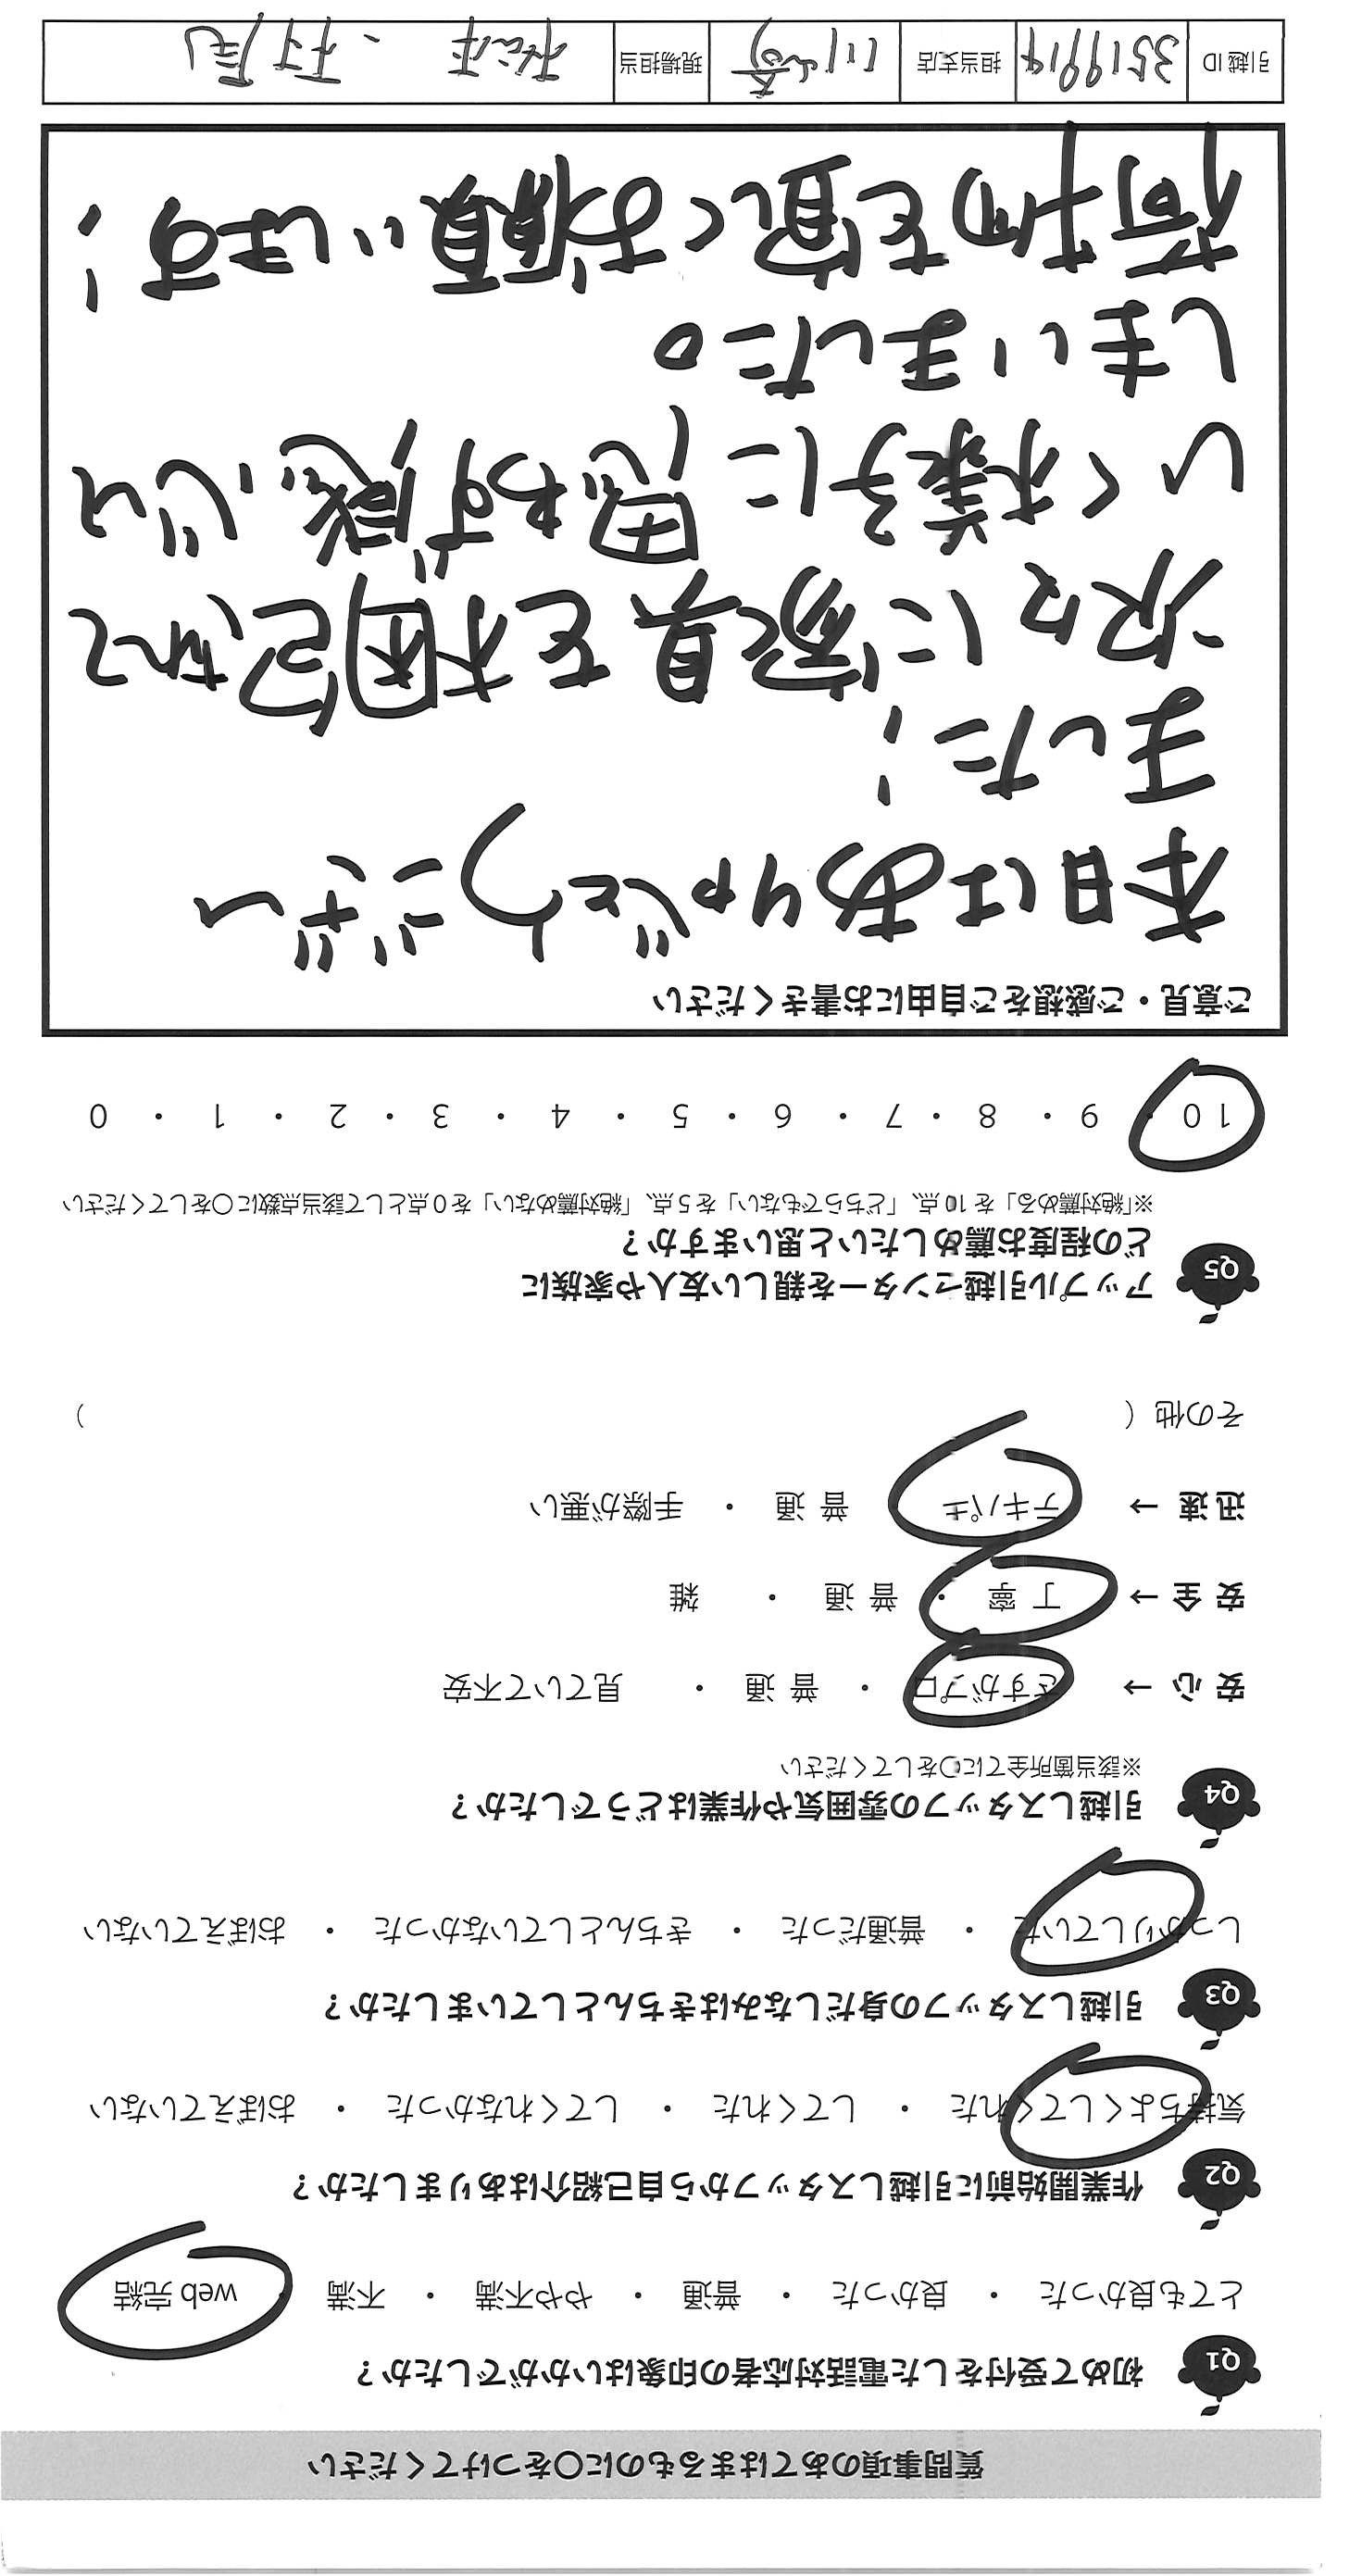 質問事項のあてはまるものに○をつけてください
Q1 初めて受付をした電話対応者の印象はいかがでしたか？
とても良かった ・ 良かった ・ 普通 ・ やや不満 ・ 不満 ・ web 完結
Q2 作業開始前に引越しスタッフから自己紹介はありましたか？
気持ちよくしてくれた ・ してくれた ・ してくれなかった ・ おぼえていない
Q3 引越しスタッフの身だしなみはきちんとしていましたか？
しっかりしていた ・ 普通だった ・ きちんとしていなかった ・ おぼえていない
Q4 引越しスタッフの雰囲気や作業はどうでしたか？
※該当箇所全てに○をしてください
安 心 → さすがプロ ・ 普 通 ・ 見ていて不安
安 全 → 丁 寧 ・ 普 通 ・ 雑
迅 速 → テキパキ ・ 普 通 ・ 手際が悪い
その他（ ）
Q5 アップル引越センターを親しい友人や家族に
どの程度お薦めしたいと思いますか？
※「絶対薦める」を 10 点、「どちらでもない」を 5 点、「絶対薦めない」を 0 点として該当点数に○をしてください
10 ・ 9 ・ 8 ・ 7 ・ 6 ・ 5 ・ 4 ・ 3 ・ 2 ・ 1 ・ 0
ご意見・ご感想をご自由にお書きください
本日はありがとうござい
ました！
次々に家具を梱包されて
いく様子に 思わず感じり
しまいました。
荷物を宜しくお願いします！
引越 ID 3519914 担当支店 川崎 現場担当 松本 、村尾